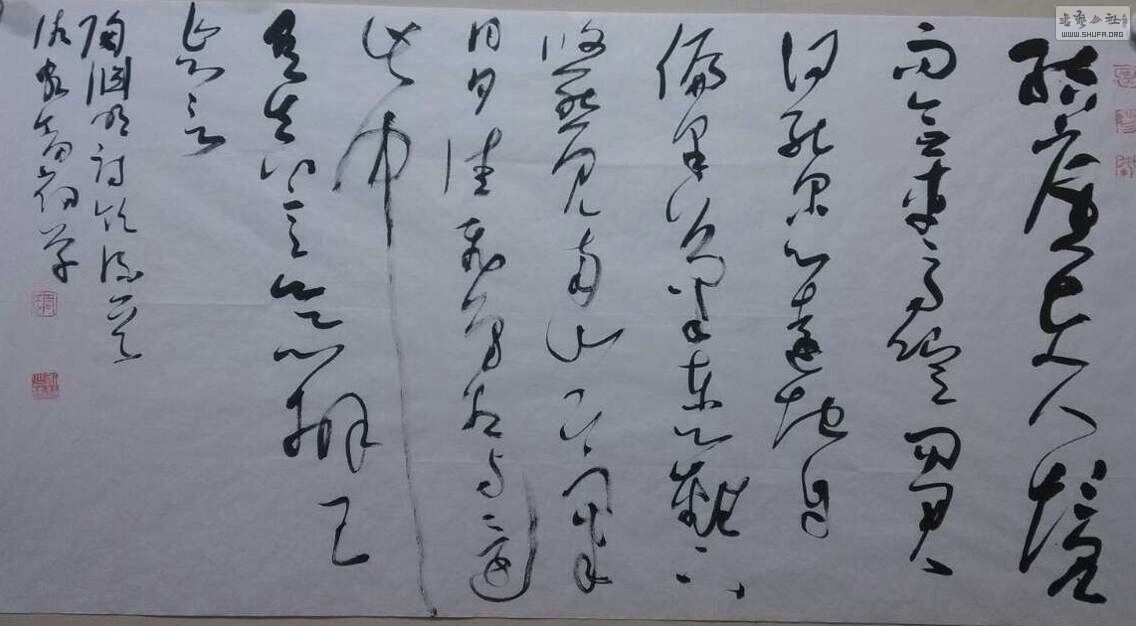 結廬在人境
而無車馬喧問君
何能爾心遠地自
偏采菊東籬下
悠然見南山山氣
日夕佳飛鳥相與還
此中
有真意欲辨已
忘言
陶淵明詩飲酒
書藝公社
WWW.SHUFA.ORG